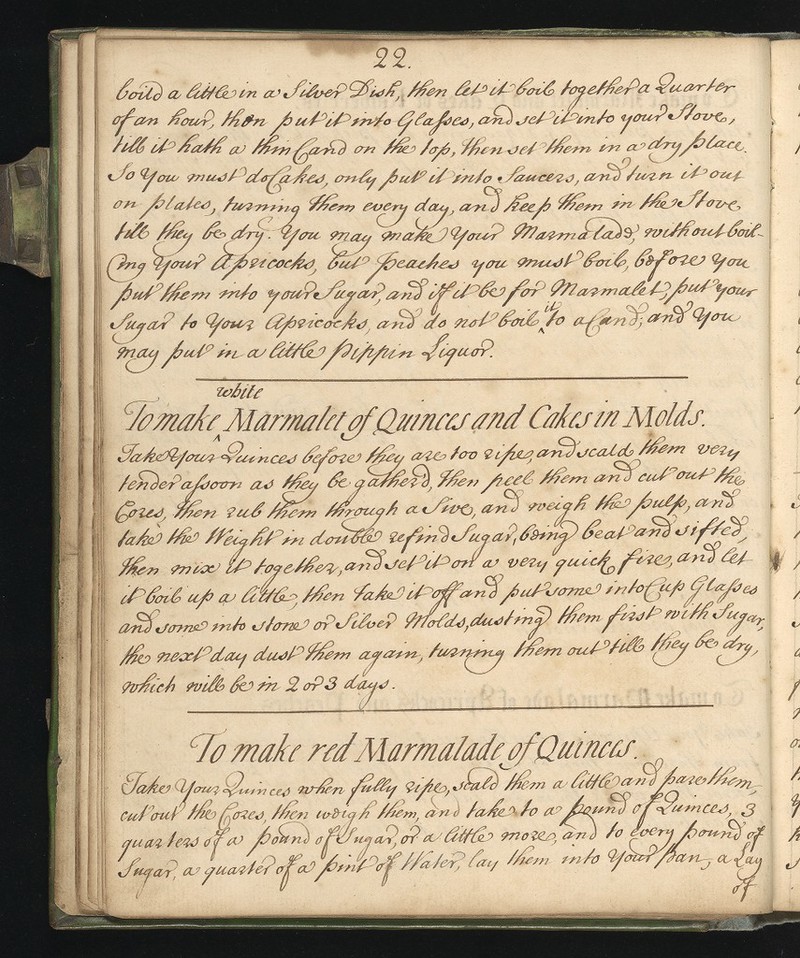 22.
boild a little in a Silver Dish, then let it boil together a Quarter
of an hour, then put it into Glasses, and set it into your Stove,
till it hath a thin Cand on the top, then set them in a dry place.
So You must do Cakes, only put it into Saucers, and turn it out
on plates, turning them every day, and keep them in the Stove
till they be dry. You may make Your Marmalade, without boil-
ing Your Apricocks, but Peaches you must boil, before you
put them into your Sugar, and if it be for Marmalet, put your
Sugar to Your Apricocks, and do not boil ^it to a Cand; and You
may put in a little Pippin Liquor.
To make ^white Marmalet of Quinces and Cakes in Molds.
Take Your Quinces before they are too ripe, and scald them very
tender assoon as they be gather'd, then peel them and cut out the
Cores, then rub them through a Sive, and weigh the pulp, and
take the Weight in double refind Sugar, being beat and sifted,
then mix it together, and set it on a very quick fire, and let
it boil up a little, then take it off and put some into Cup Glasses
and some into stone or Silver Molds, dusting them first with Sugar,
the next day dust them again, turning them out till they be dry,
which will be in 2 or 3 days.
To make red Marmalade of Quinces.
Take Your Quinces when fully ripe, scald them a little and pare them,
cut out the Cores, then weigh them, and take to a pound of Quinces, 3
quarters of a pound of Sugar, or a little more, and to every pound of
Sugar, a quarter of a pint of Water, lay them into Your pan, a Lay
of